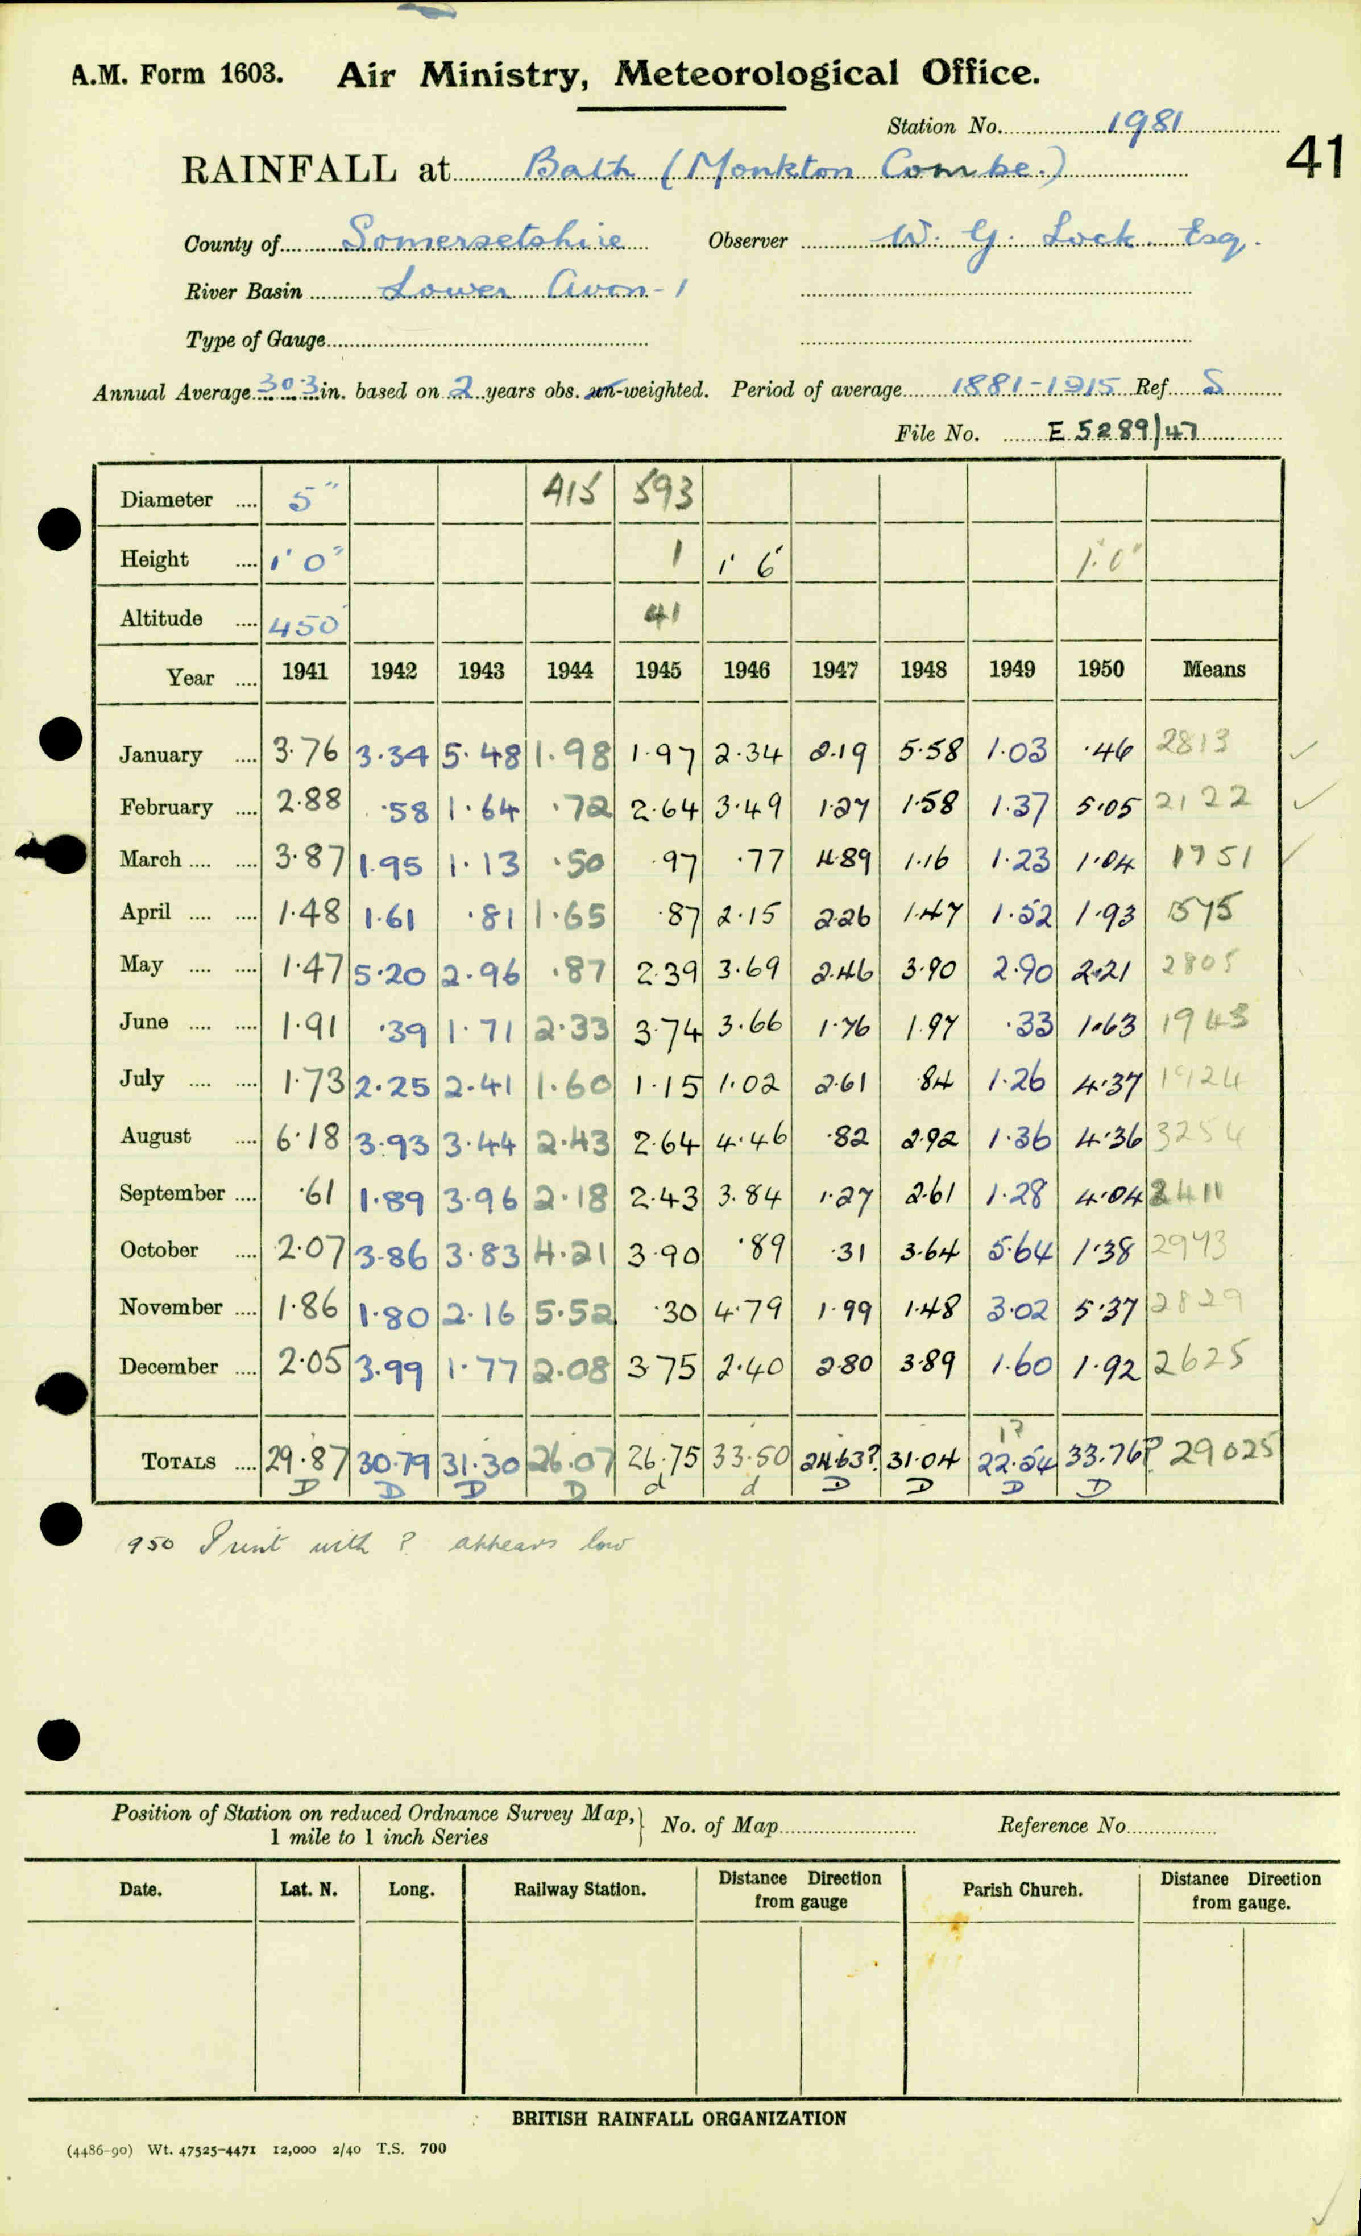 A.M. Form 1603. Air Ministry, Meteorological Office.
Station No. 1981
41
RAINFALL at Bath (Monkton Combe.)
County of Somersetshire Observer W. G. Lock Esq.
River Basin Lower Avon - 1
Type of Gauge
Annual Average 30.3 in. based on 2 years obs. un-weighted. Period of average 1881-1915 Ref S
File No. E 5289/47
Diameter .... 5" 415 593
Height .... 1' 0" 1 1' 6" 1' 0"
Altitude .... 450 41
Year .... 1941 1942 1943 1944 1945 1946 1947 1948 1949 1950 Means
January .... 3.76 3.34 5.48 1.98 1.97 2.34 2.19 5.58 1.03 .46 2813
February .... 2.88 .58 1.64 .72 2.64 3.49 1.27 1.58 1.37 5.05 2122
March .... .... 3.87 1.95 1.13 .50 .97 .77 4.89 1.16 1.23 1.04 1751
April .... .... 1.48 1.61 .81 1.65 .87 2.15 2.26 1.47 1.52 1.93 1575
May .... .... 1.47 5.20 2.96 .87 2.39 3.69 2.46 3.90 2.90 2.21 2805
June .... .... 1.91 .39 1.71 2.33 3.74 3.66 1.76 1.97 .33 1.63 1943
July .... .... 1.73 2.25 2.41 1.60 1.15 1.02 2.61 .84 1.26 4.37 1924
August .... 6.18 3.93 3.44 2.43 2.64 4.46 .82 2.92 1.36 4.36 3254
September .... .61 1.89 3.96 2.18 2.43 3.84 1.27 2.61 1.28 4.04 2411
October .... 2.07 3.86 3.83 4.21 3.90 .89 .31 3.64 5.64 1.38 2973
November .... 1.86 1.80 2.16 5.52 .30 4.79 1.99 1.48 3.02 5.37 2829
December .... 2.05 3.99 1.77 2.08 3.75 2.40 2.80 3.89 1.60 1.92 2625
17
TOTALS .... 29.87 30.79 31.30 26.07 26.75 33.50 24.63? 31.04 22.54 33.76? 29025
D D D D d d D D D D
950 Print with ? appears low
Position of Station on reduced Ordnance Survey Map, 1 mile to 1 inch Series No. of Map Reference No.
Date. Lat. N. Long. Railway Station. Distance Direction from gauge Parish Church. Distance Direction from gauge.
BRITISH RAINFALL ORGANIZATION
(4486-90) Wt. 47525-4471 12,000 2/40 T.S. 700